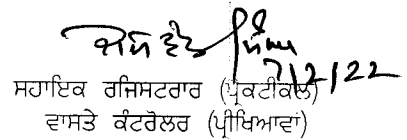 7/2/22
ਸਹਾਇਕ ਰਜਿਸਟਰਾਰ (ਪ੍ਰੈਕਟੀਕਲ)
ਵਾਸਤੇ ਕੰਟਰੋਲਰ (ਪ੍ਰੀਖਿਆਵਾਂ)